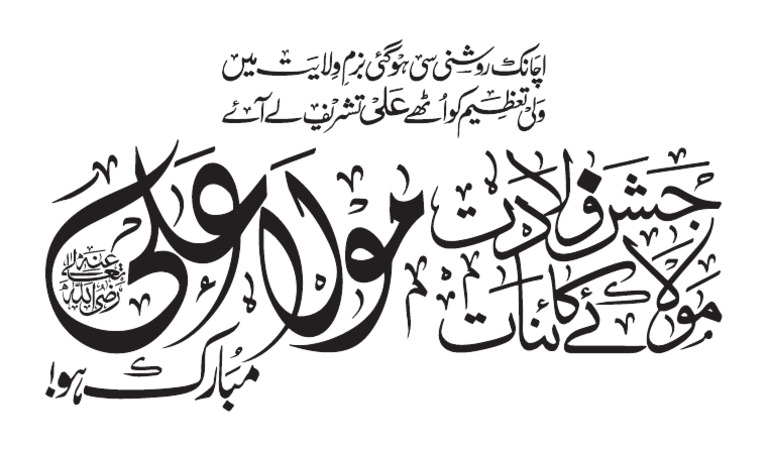 اچانک روشنی سی ہوگئی بزمِ ولایت میں
ولی تعظیم کو اُٹھے علی تشریف لے آئے
جشن ولادت
مولائے کائنات
مولا علی
رضی اللہ تعالیٰ عنہ
مبارک ہو!